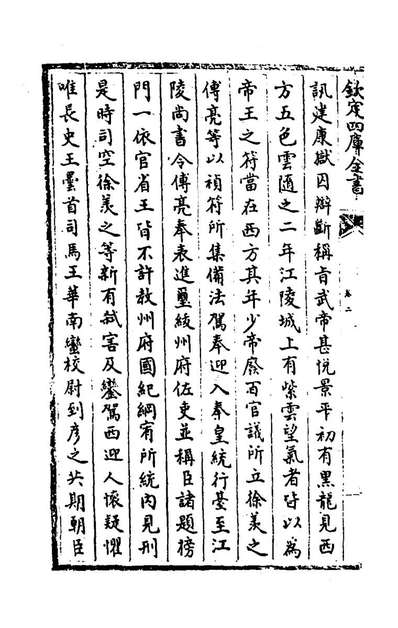 欽定四庫全書
卷二
訊建康獄囚辯斷稱旨武帝甚悅景平初有黑龍見西
方五色雲隨之二年江陵城上有紫雲望氣者皆以為
帝王之符當在西方其年少帝廢百官議所立徐羨之
傅亮等以禎符所集備法駕奉迎入奉皇統行臺至江
陵尚書令傅亮奉表進璽綬州府佐吏並稱臣請題榜
門一依宮省王皆不許教州府國紀綱宥所統內見刑
是時司空徐羨之等新有弒害及鑾駕西迎人懷疑懼
唯長史王曇首司馬王華南蠻校尉到彦之共期朝臣